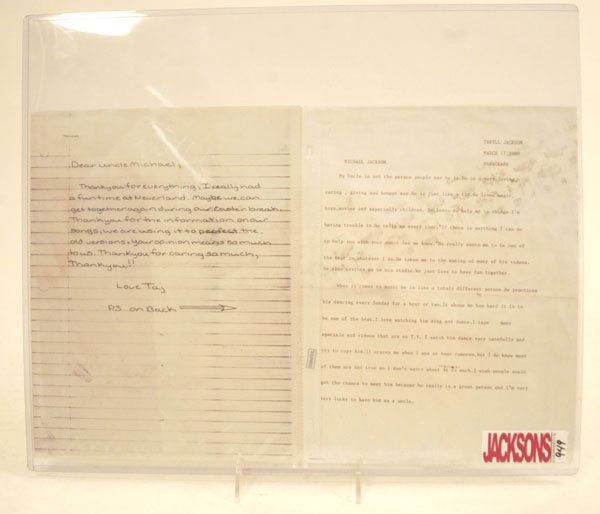 Dear Uncle Michael,
Thankyou for everything, I really had
a fun time at Neverland. Maybe we can
get together again during our Easter break.
Thankyou for the information on our
songs, we are using it to perfect the
old versions. Your opinion means so much
to us. Thankyou for caring so much,
Thankyou!!
Love Taj
P.S. on Back
TARYLL JACKSON
MARCH 17, 
PARAGRAPH
MICHAEL JACKSON
My Uncle is not the person people say he is. He is a very loving,
caring, giving and honest man. He is just like a kid. He loves magic,
toys, movies and especially children. He loves to help me in things I'm
having trouble in. He tells me every time, "If there is anything I can do
to help you with your music let me know." He really wants me to be one of
the best in whatever I do. He takes me to the making of many of his videos.
He also invites me in his studio. We just love to have fun together.
When it comes to music he is like a totaly different person. He practices
his dancing every Sunday for a hour or two. It shows me how hard it is to
be one of the best. I love watching him sing and dance. I tape many
specials and videos that are on T.V. I watch him dance very carefully and
try to copy him. It scares me when I see or hear rumores, but I do know most
of them are not true so I don't worry about it so much. I wish people could
get the chance to meet him because he really is a great person and I'm very
very lucky to have him as a uncle.
JACKSONS
949